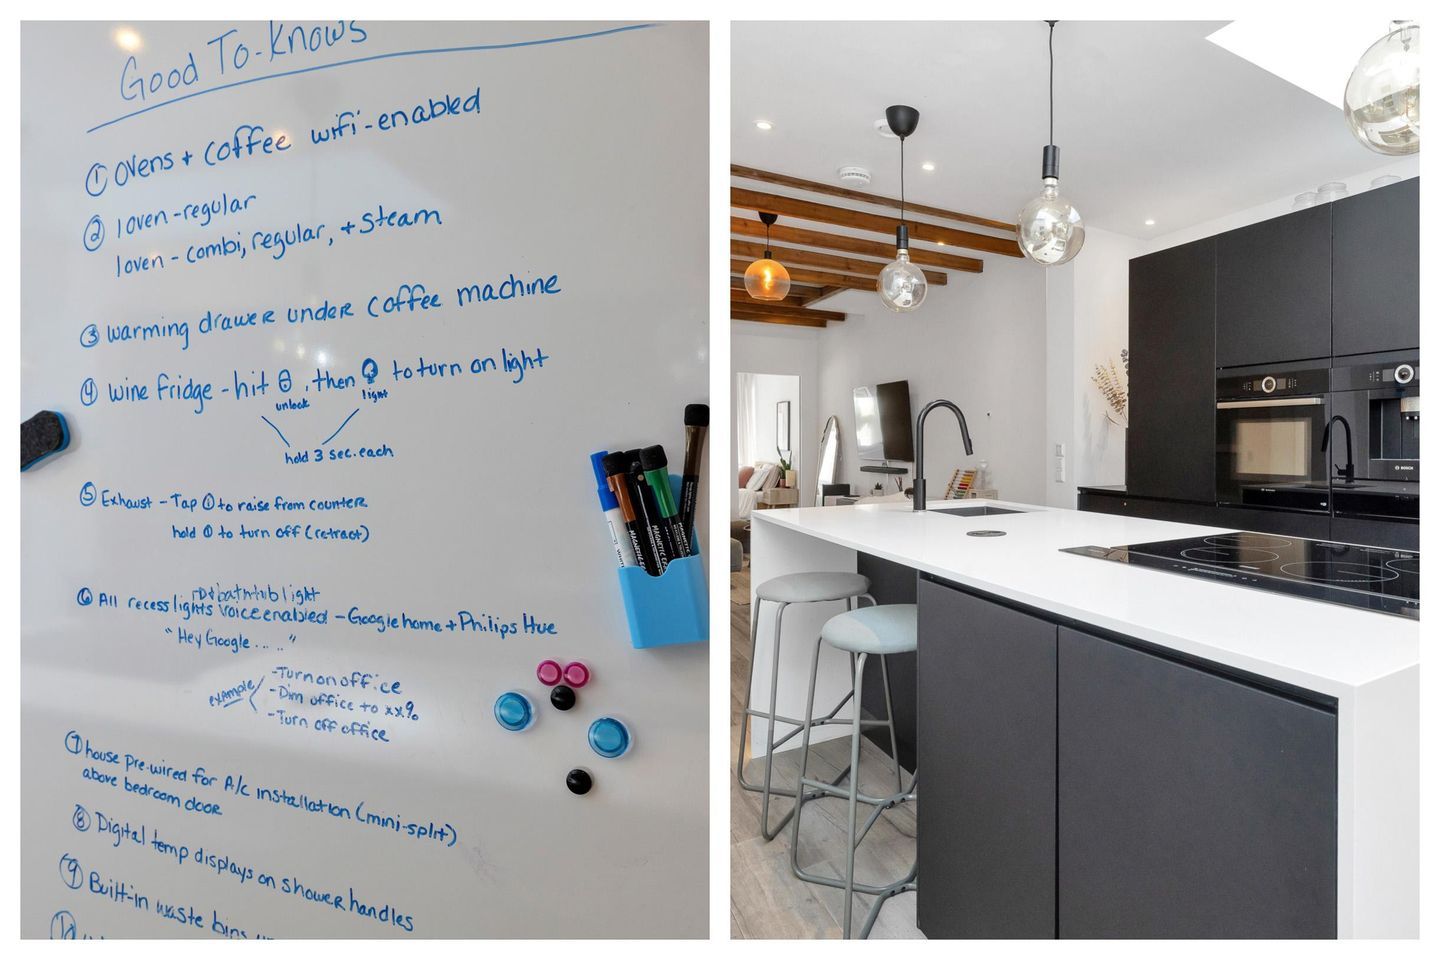 Good To-Knows
① Ovens + Coffee wifi-enabled
② 1 oven - regular
1 oven - combi, regular, + Steam
③ warming drawer under coffee machine
④ wine fridge - hit , then to turn on light
unlock light
hold 3 sec. each
⑤ Exhaust - Tap ① to raise from counter
hold ① to turn off (retract)
bathtub light
⑥ All recess lights voice enabled - Google home + Philips Hue
"Hey Google . . . . "
example
- Turn on office
- Dim office to xx%
- Turn off office
⑦ house pre-wired for A/c installation (mini-split)
above bedroom door
⑧ Digital temp displays on shower handles
⑨ Built-in waste bins
BOSCH